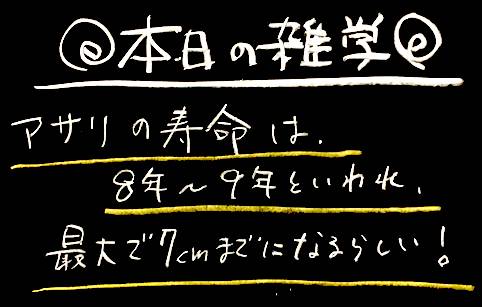 ◎本日の雑学◎
アサリの寿命は、
8年～9年といわれ、
最大で7cmまでになるらしい！